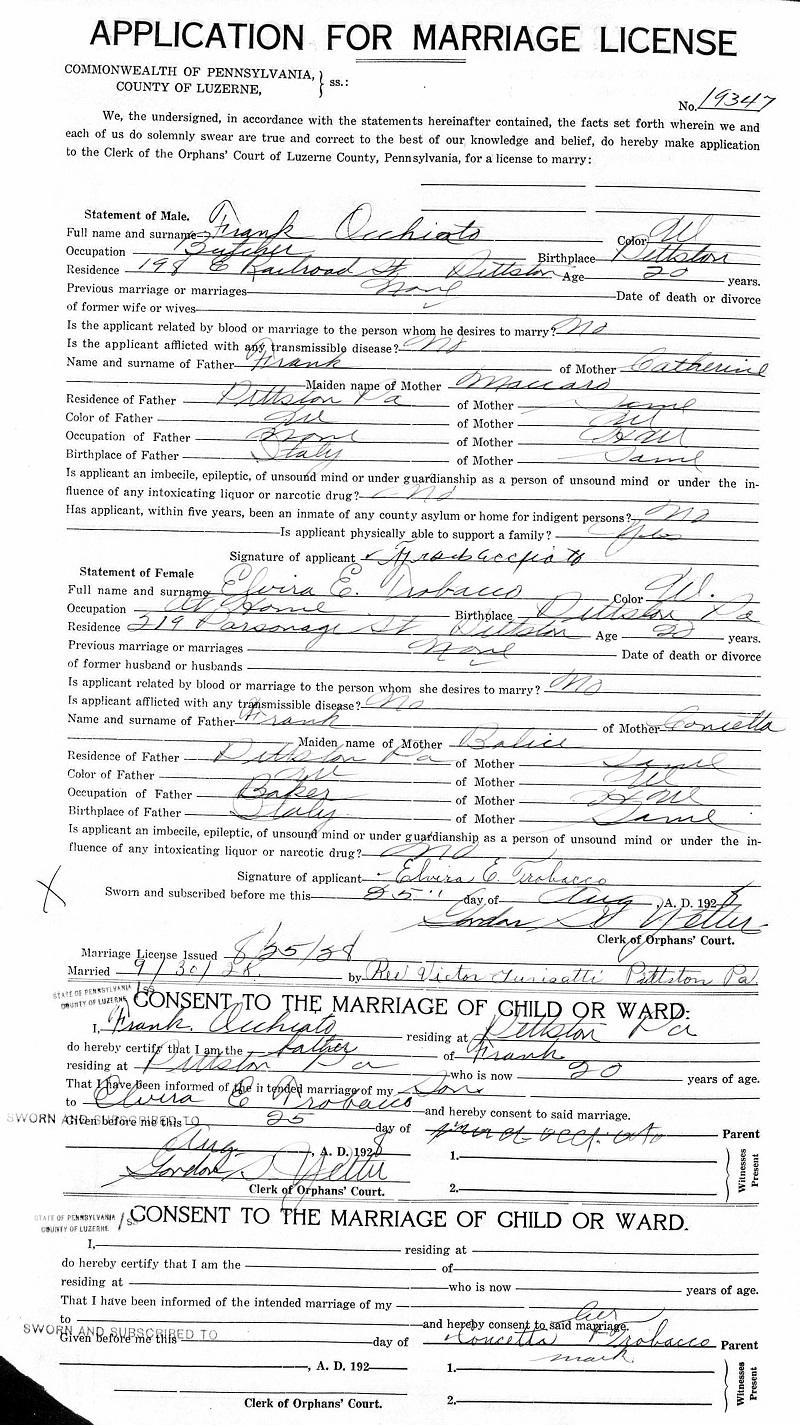 APPLICATION FOR MARRIAGE LICENSE
COMMONWEALTH OF PENNSYLVANIA, } ss.:
COUNTY OF LUZERNE,
No. 19347
We, the undersigned, in accordance with the statements hereinafter contained, the facts set forth wherein we and
each of us do solemnly swear are true and correct to the best of our knowledge and belief, do hereby make application
to the Clerk of the Orphans' Court of Luzerne County, Pennsylvania, for a license to marry:
Statement of Male.
Full name and surname Frank Occhiato Color W
Occupation Butcher Birthplace Pittston
Residence 198 E Railroad St Pittston Age 20 years.
Previous marriage or marriages None Date of death or divorce
of former wife or wives
Is the applicant related by blood or marriage to the person whom he desires to marry? No
Is the applicant afflicted with any transmissible disease? No
Name and surname of Father Frank of Mother Catherine
Maiden name of Mother
Residence of Father Pittston Pa of Mother Same
Color of Father W of Mother W
Occupation of Father None of Mother H W
Birthplace of Father Italy of Mother Same
Is applicant an imbecile, epileptic, of unsound mind or under guardianship as a person of unsound mind or under the in-
fluence of any intoxicating liquor or narcotic drug? No
Has applicant, within five years, been an inmate of any county asylum or home for indigent persons? No
Is applicant physically able to support a family? Yes
Signature of applicant
Statement of Female
Full name and surname Elvira E. Trobacco Color W.
Occupation At Home Birthplace Pittston Pa
Residence 219 Parsonage St Pittston Age 20 years.
Previous marriage or marriages None Date of death or divorce
of former husband or husbands
Is applicant related by blood or marriage to the person whom she desires to marry? No
Is applicant afflicted with any transmissible disease? No
Name and surname of Father Frank of Mother Concetta
Maiden name of Mother Balice
Residence of Father Pittston Pa of Mother Same
Color of Father W of Mother W
Occupation of Father Baker of Mother H W
Birthplace of Father Italy of Mother Same
Is applicant an imbecile, epileptic, of unsound mind or under guardianship as a person of unsound mind or under the in-
fluence of any intoxicating liquor or narcotic drug? No
Signature of applicant Elvira E. Trobacco
X
Sworn and subscribed before me this 25" day of Aug , A. D. 1928
Gordon
Clerk of Orphans' Court.
Marriage License Issued 8/25/28
Married 9/30/28. by Rev Victor Pittston Pa.
STATE OF PENNSYLVANIA
COUNTY OF LUZERNE } ss.
CONSENT TO THE MARRIAGE OF CHILD OR WARD.
I, Frank Occhiato residing at Pittston Pa
do hereby certify that I am the father of Frank
residing at Pittston Pa who is now 20 years of age.
That I have been informed of the intended marriage of my Son
to Elvira E Trobacco and hereby consent to said marriage.
SWORN AND SUBSCRIBED TO
Given before me this 25 day of Parent
Aug. , A. D. 1928 1.
Gordon
Clerk of Orphans' Court. 2.
Witnesses Present
STATE OF PENNSYLVANIA
COUNTY OF LUZERNE } ss.
CONSENT TO THE MARRIAGE OF CHILD OR WARD.
I, residing at
do hereby certify that I am the of
residing at who is now years of age.
That I have been informed of the intended marriage of my
to and hereby consent to said marriage.
her
SWORN AND SUBSCRIBED TO
Given before me this day of Concetta Trobacco Parent
mark
, A. D. 192 1.
Clerk of Orphans' Court. 2.
Witnesses Present